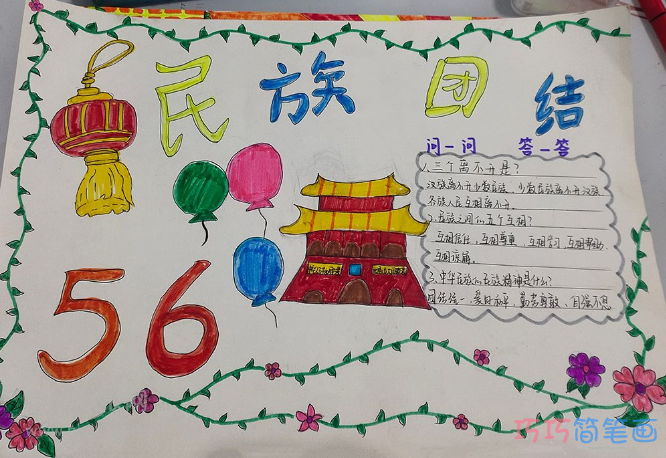 民族团结
问一问 答一答
1、三个离不开是?
汉族离不开少数民族,少数民族离不开汉族
各族人民互相离不开。
2、民族之间的五个互相?
互相信任、互相尊重、互相学习、互相帮助、
互相谅解。
3、中华民族的民族精神是什么?
团结统一、爱好和平、勤劳勇敢、自强不息
56
巧巧简笔画